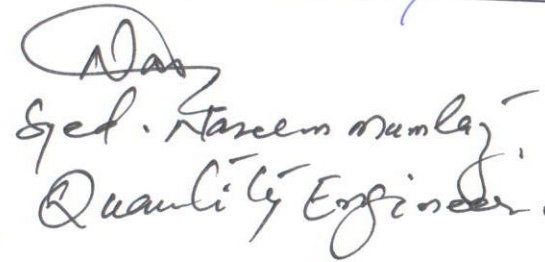 Naz
Syed. Naseem Mumtaz.
Quantity Engineer.